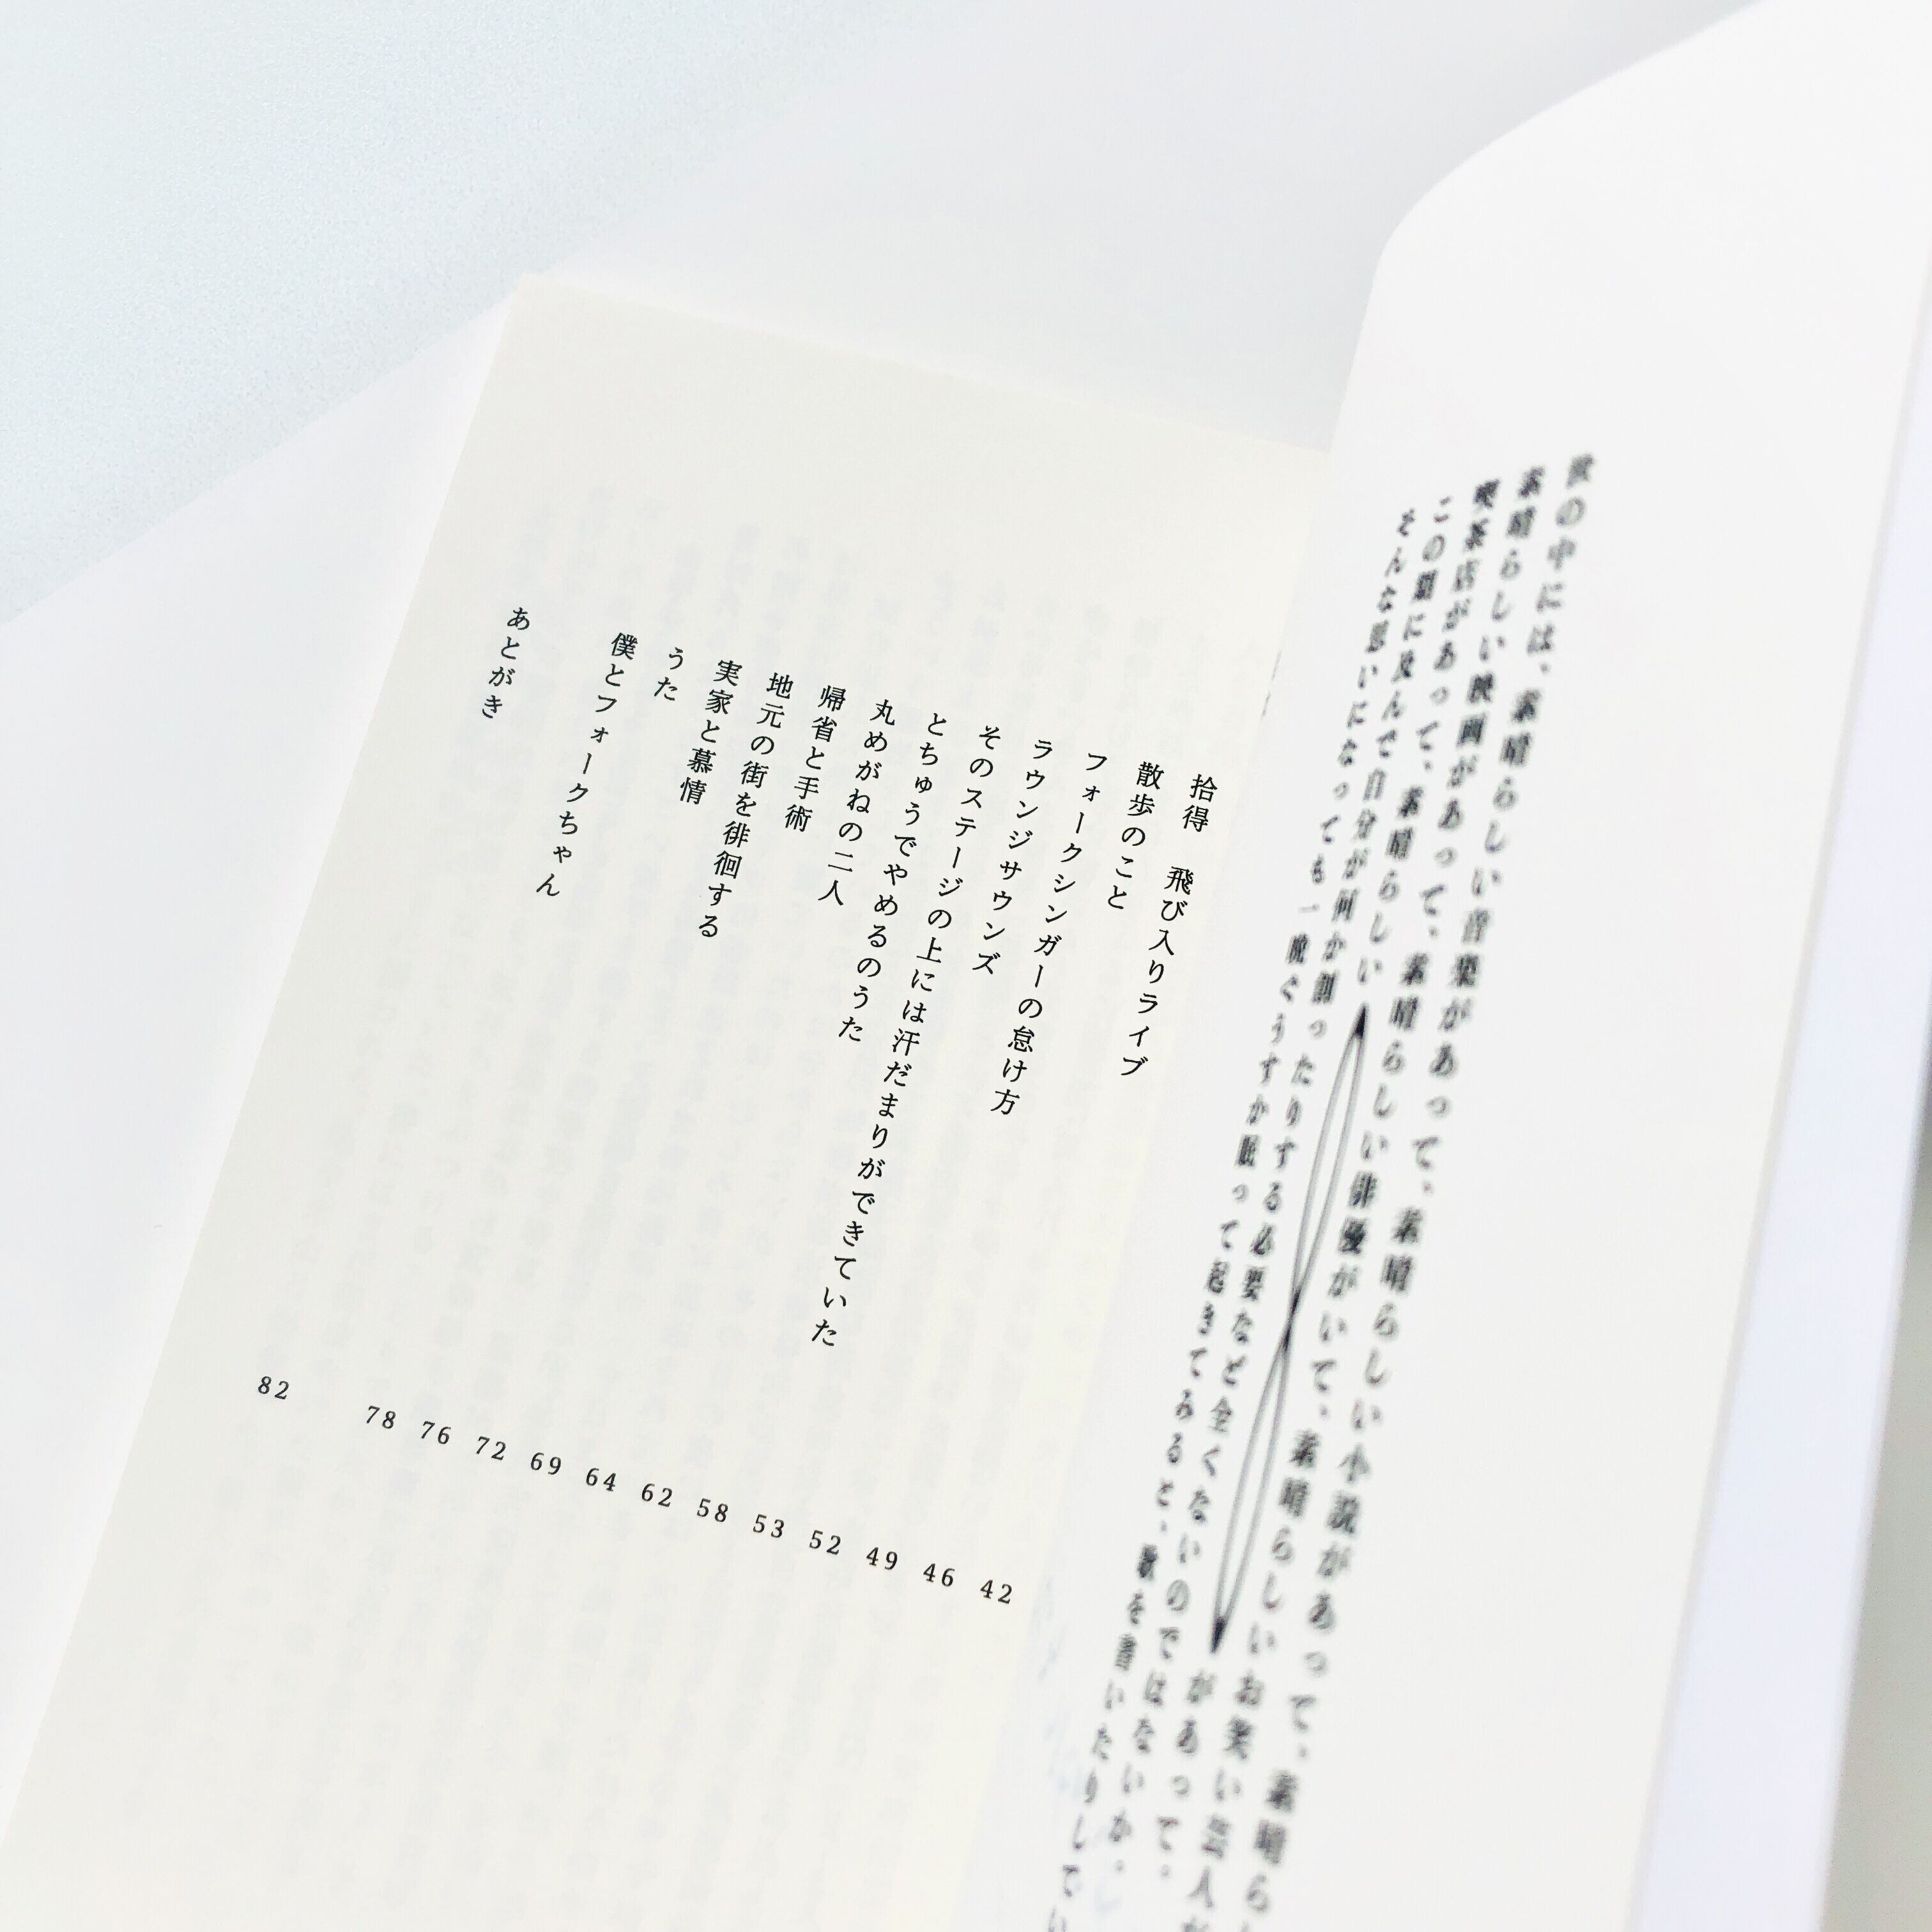 世の中には、素晴らしい音楽があって、素晴らしい小説があって、素晴らし
素晴らしい映画があって、素晴らしい俳優がいて、素晴らしいお笑い芸人が
喫茶店があって、素晴らしい があって。
この期に及んで自分が何か創ったりする必要など全くないのではないか。
そんな思いになっても一晩ぐうすか眠って起きてみると、歌を書いたりしてい
拾得 飛び入りライブ 42
散歩のこと 46
フォークシンガーの怠け方 49
ラウンジサウンズ 52
そのステージの上には汗だまりができていた 53
とちゅうでやめるのうた 58
丸めがねの二人 62
帰省と手術 64
地元の街を徘徊する 69
実家と慕情 72
うた 76
僕とフォークちゃん 78
あとがき 82